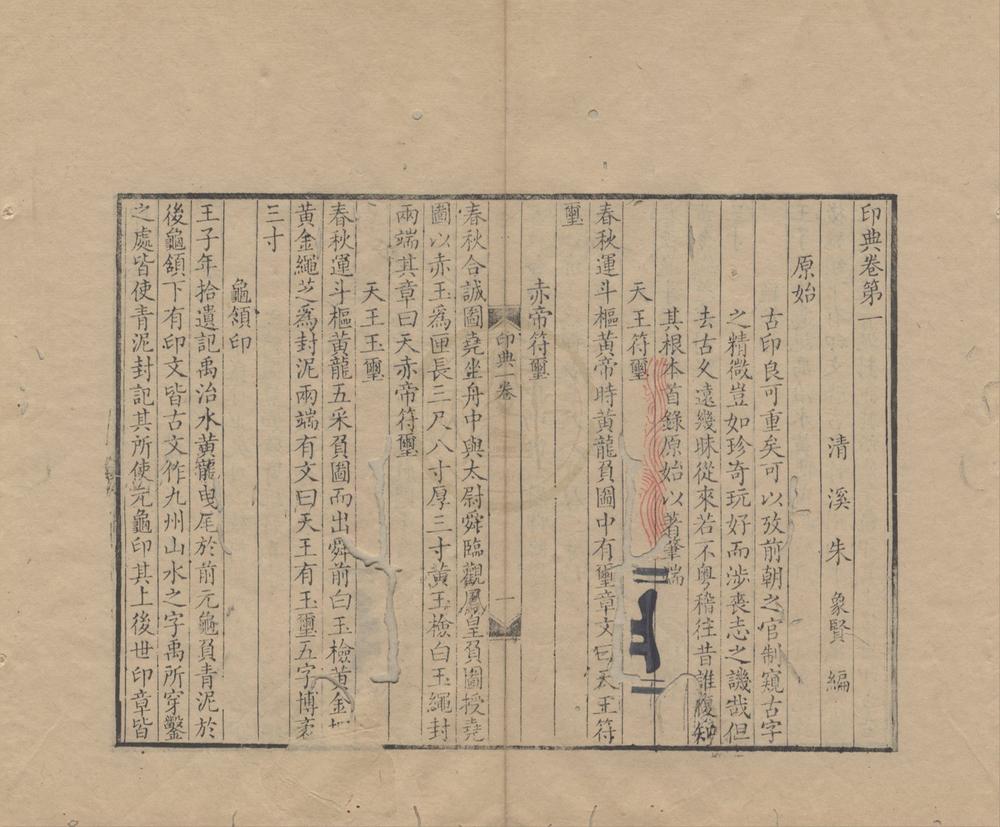 印典卷第一
清溪朱象賢編
原始
古印良可重矣可以攷前朝之官制窺古字
之精微豈如珍奇玩好而涉喪志之譏哉但
去古久遠幾昧從來若不粵稽往昔誰複知
其根本首錄原始以著肇端
天王符璽
春秋運斗樞黃帝時黃龍負圖中有璽章文曰天王符
璽
赤帝符璽
印典卷一
一
春秋合誠圖堯坐舟中與太尉舜臨觀鳳皇負圖授堯
圖以赤玉爲匣長三尺八寸厚三寸黃玉檢白玉繩封
兩端其章曰天赤帝符璽
天王玉璽
春秋運斗樞黃龍五采負圖而出舜前白玉檢黃金
黃金繩芝爲封泥兩端有文曰天王有玉璽五字博袤
三寸
龜頷印
王子年拾遺記禹治水黃龍曳尾於前元龜負青泥於
後龜頷下有印文皆古文作九州山水之字禹所穿鑿
之處皆使青泥封記其所使元龜印其上後世印章皆